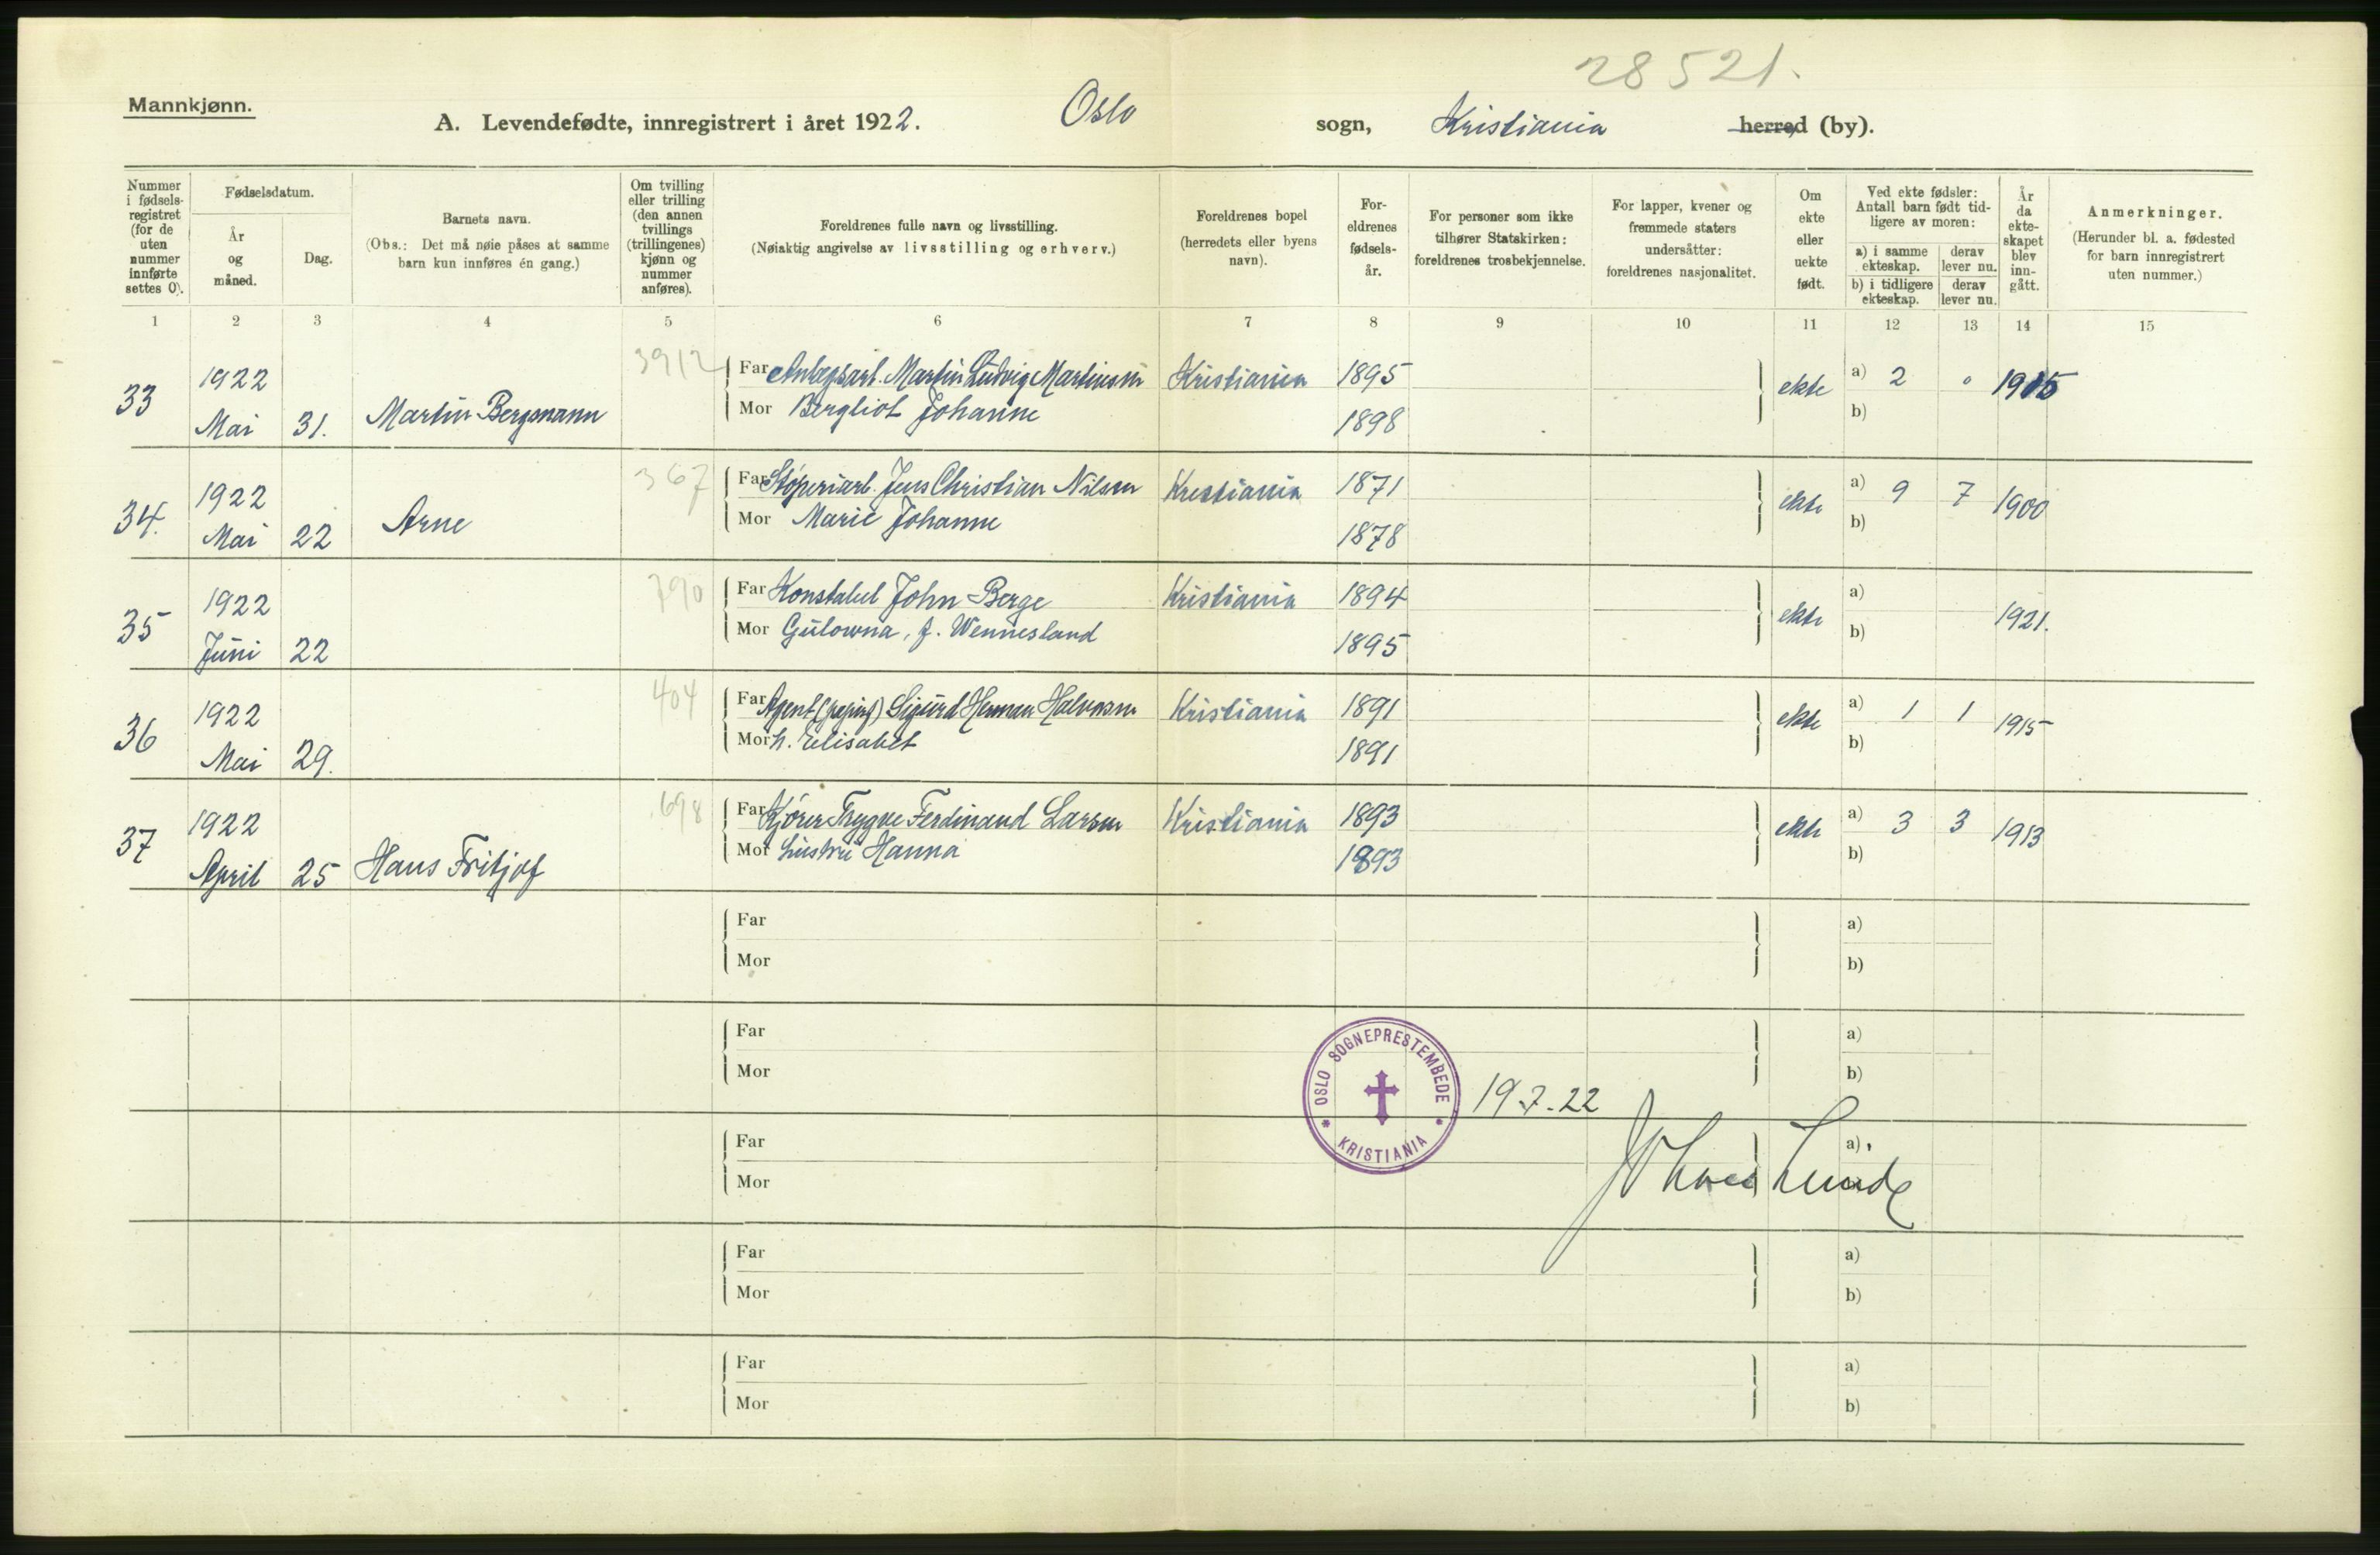 28521.
Mannkjønn.
A. Levendefødte, innregistrert i året 1922. Oslo sogn, Kristiania herred (by).
Nummer i fødsels-registret (for de uten nummer innførte settes 0).
Fødselsdatum.
År og måned.
Dag.
Barnets navn.
(Obs.: Det må nøie påses at samme barn kun innføres én gang.)
Om tvilling eller trilling (den annen tvillings (trillingenes) kjønn og nummer anføres).
Foreldrenes fulle navn og livsstilling.
(Nøiaktig angivelse av livsstilling og erhverv.)
Foreldrenes bopel (herredets eller byens navn).
For-eldrenes fødsels-år.
For personer som ikke tilhører Statskirken: foreldrenes trosbekjennelse.
For lapper, kvener og fremmede staters undersåtter: foreldrenes nasjonalitet.
Om ekte eller uekte født.
Ved ekte fødsler: Antall barn født tid-ligere av moren:
a) i samme ekteskap. derav lever nu.
b) i tidligere ekteskap. derav lever nu.
År da ekte-skapet blev inn-gått.
Anmerkninger.
(Herunder bl. a. fødested for barn innregistrert uten nummer.)
1 2 3 4 5 6 7 8 9 10 11 12 13 14 15
33 1922 Mai 31. Martin Bergmann 3912
Far Anlegsarb. Martin Ludvig Martinsen Kristiania 1895 ekte a) 2 0 1915
Mor Bergliot Johanne 1898 b)
34. 1922 Mai 22 Arne 367
Far Støperiarb. Jens Christian Nilsen Kristiania 1871 ekte a) 9 7 1900
Mor Marie Johanne 1878 b)
35 1922 Juni 22 790
Far Konstabel John Berge Kristiania 1894 ekte a) 1921.
Mor Gulowna, f. Wennesland 1895 b)
36 1922 Mai 29. 404
Far Agent Sigurd Herman Halvorsen Kristiania 1891 ekte a) 1 1 1915
Mor h. Elisabet 1891 b)
37 1922 April 25 Hans Fritjof 698
Far Kjører Trygve Ferdinand Larsen Kristiania 1893 ekte a) 3 3 1913
Mor hustru Hanna 1893 b)
Far a)
Mor b)
Far a)
Mor b)
OSLO SOGNEPRESTEMBEDE * KRISTIANIA *
19.7.22
Far a)
Mor
Lunde
Far a)
Mor b)
Far a)
Mor b)